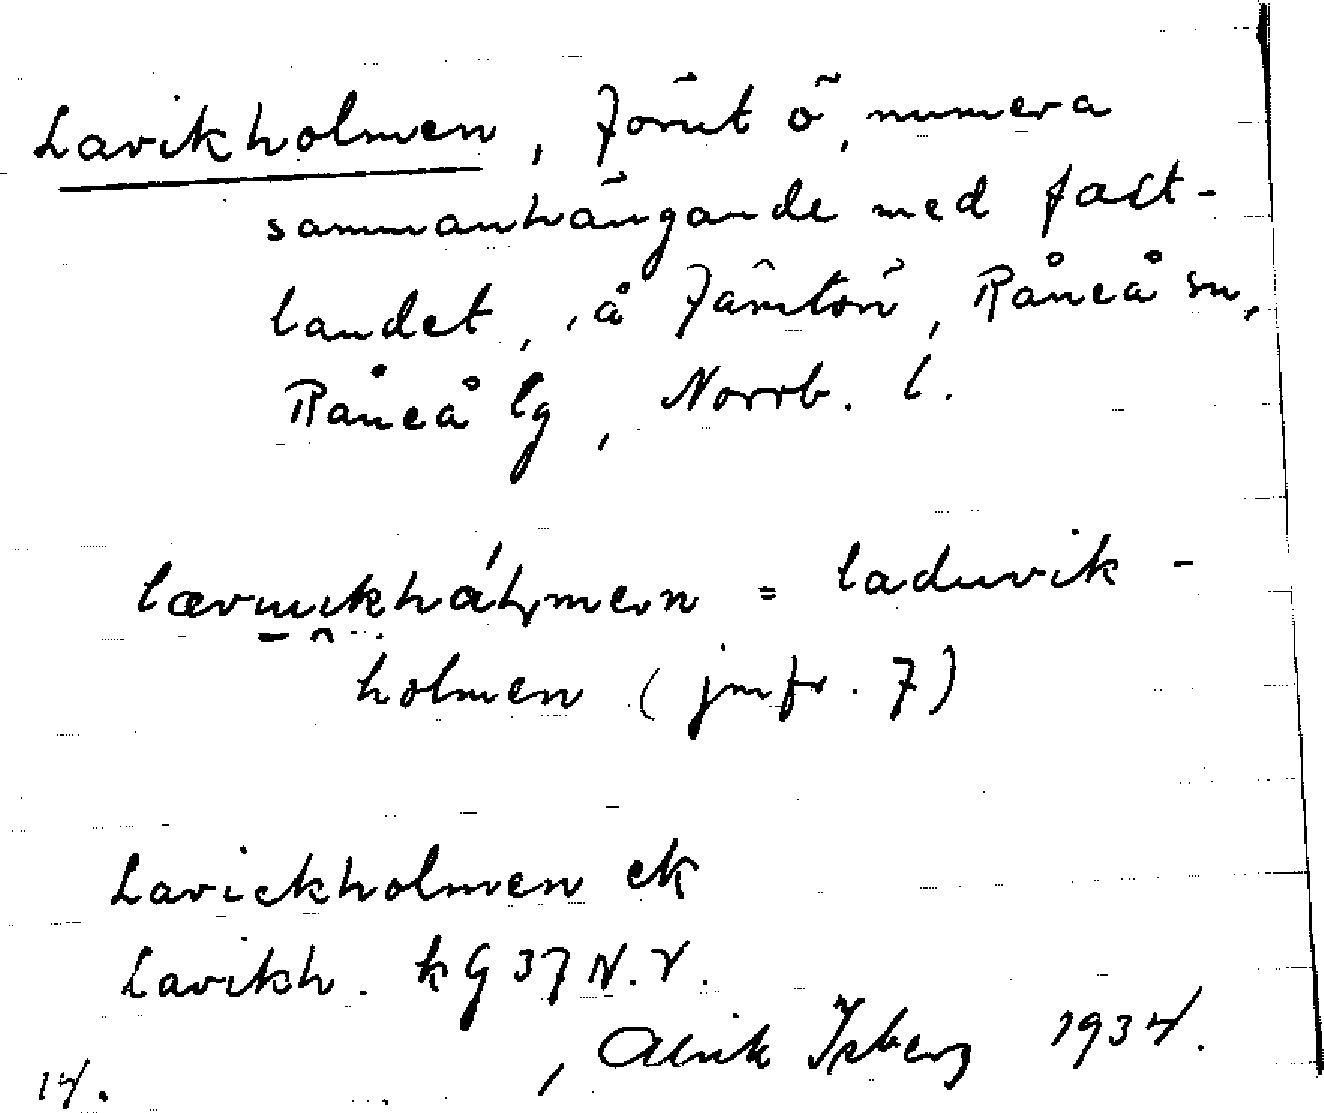 Lavikholmen, förut ö, numera
sammanhängande med fast-
landet, å Jämtön, Råneå sn,
Råneå lg, Norrb. l.
= laduvik-
holmen (jmfr. 7)
Lavickholmen ek
Lavikh. kG 37 N.V.
, Alrik Isberg 1934.
14.